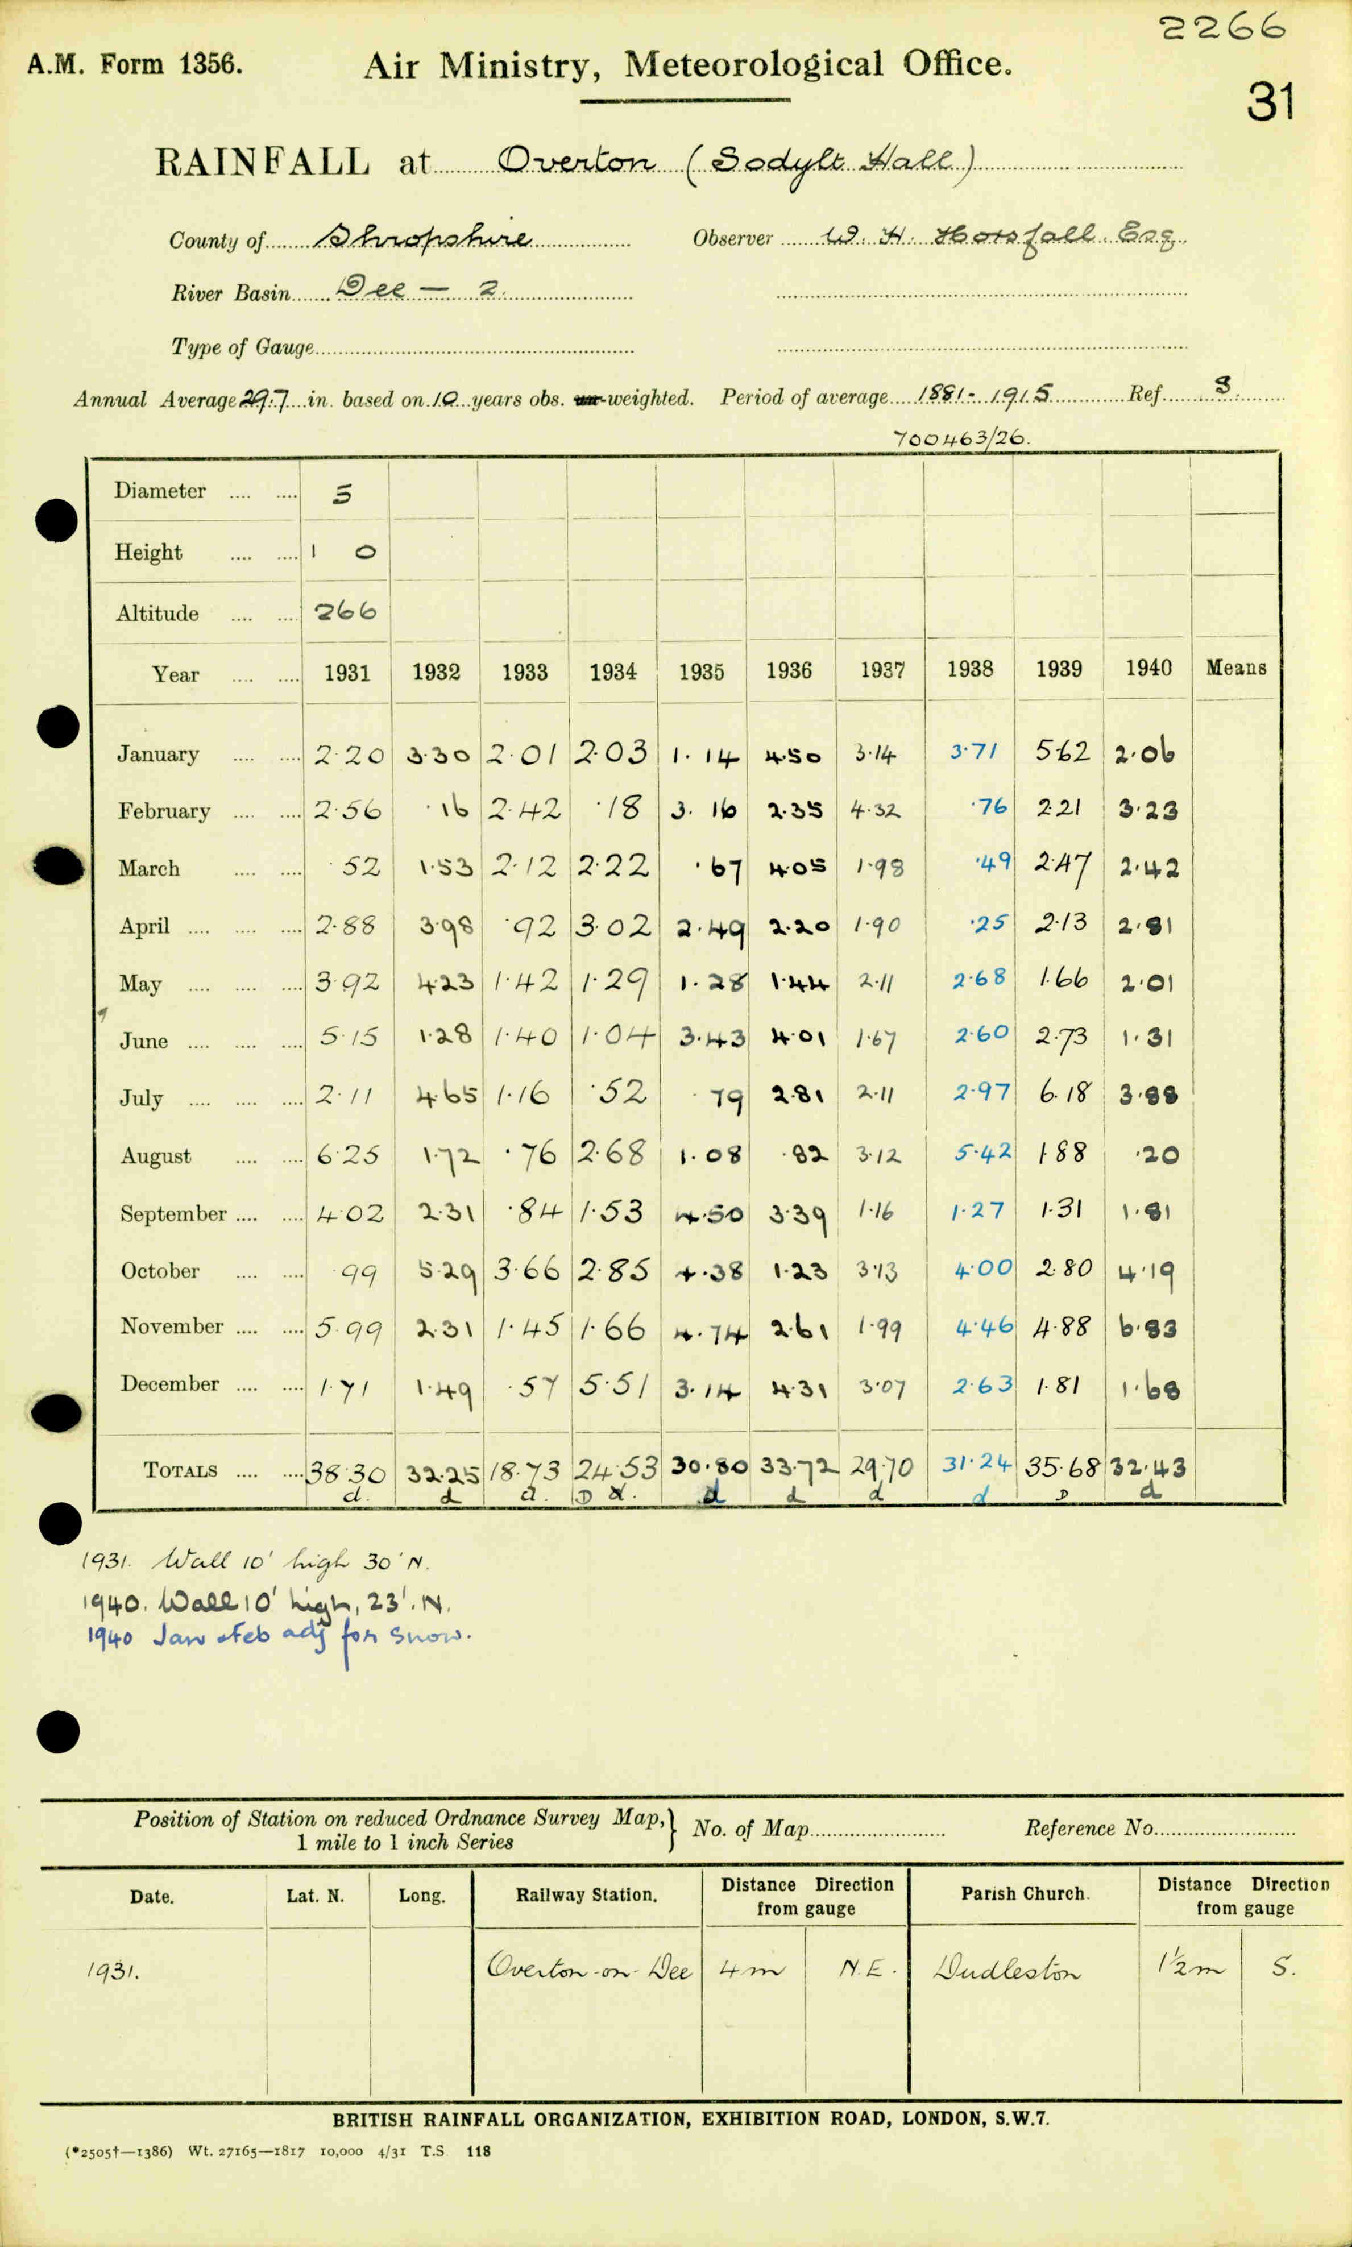 2266
A.M. Form 1356. Air Ministry, Meteorological Office.
31
RAINFALL at Overton (Sodylt Hall)
County of Shropshire Observer W. H. Horsfall Esq.
River Basin Dee — 2.
Type of Gauge
Annual Average 29.7 in. based on 10 years obs. weighted. Period of average 1881 - 1915 Ref. 3.
700463/26.
Diameter .... .... 5
Height .... .... 1 0
Altitude .... .... 266
Year .... .... 1931 1932 1933 1934 1935 1936 1937 1938 1939 1940 Means
January .... .... 2·20 3·30 2·01 2·03 1·14 4·50 3·14 3·71 5·62 2·06
February .... .... 2·56 ·16 2·42 ·18 3·16 2·35 4·32 ·76 2·21 3·23
March .... .... ·52 1·53 2·12 2·22 ·67 4·05 1·98 ·49 2·47 2·42
April .... .... .... 2·88 3·98 ·92 3·02 2·49 2·20 1·90 ·25 2·13 2·81
May .... .... .... 3·92 4·23 1·42 1·29 1·28 1·44 2·11 2·68 1·66 2·01
June .... .... .... 5·15 1·28 1·40 1·04 3·43 4·01 1·67 2·60 2·73 1·31
July .... .... .... 2·11 4·65 1·16 ·52 ·79 2·81 2·11 2·97 6·18 3·88
August .... .... 6·25 1·72 ·76 2·68 1·08 ·82 3·12 5·42 1·88 ·20
September .... .... 4·02 2·31 ·84 1·53 4·50 3·39 1·16 1·27 1·31 1·81
October .... .... ·99 5·29 3·66 2·85 4·38 1·23 3·13 4·00 2·80 4·19
November .... .... 5·99 2·31 1·45 1·66 4·74 2·61 1·99 4·46 4·88 6·83
December .... .... 1·71 1·49 ·57 5·51 3·14 4·31 3·07 2·63 1·81 1·68
TOTALS .... .... 38·30 32·25 18·73 24·53 30·80 33·72 29·70 31·24 35·68 32·43
d. d d. D d. d d d d D d
1931. Wall 10' high 30' N.
1940. Wall 10' high, 23'. N.
1940 Jan + Feb adj for snow.
Position of Station on reduced Ordnance Survey Map, } No. of Map Reference No.
1 mile to 1 inch Series
Date. Lat. N. Long. Railway Station. Distance Direction from gauge Parish Church. Distance Direction from gauge
1931. Overton-on-Dee 4 m N.E. Dudleston 1½ m S.
BRITISH RAINFALL ORGANIZATION, EXHIBITION ROAD, LONDON, S.W.7.
(*2505†—1386) Wt. 27165—1817 10,000 4/31 T.S. 118